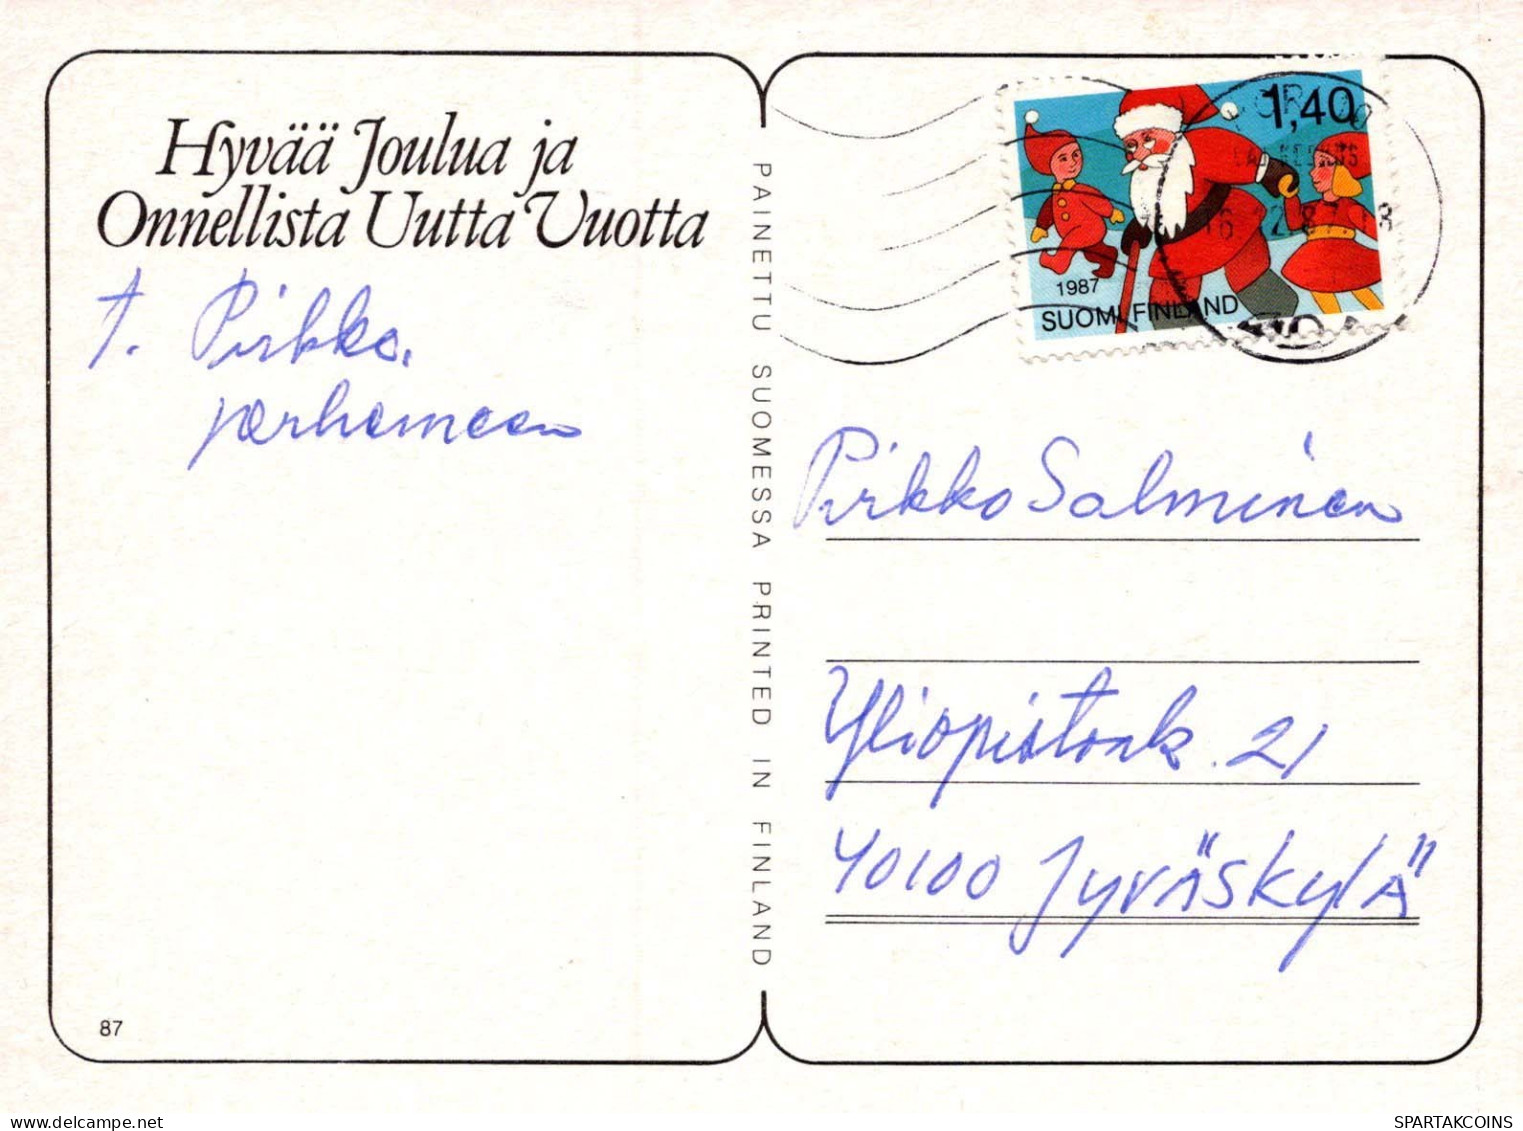 Hyvää Joulua ja
Onnellista Uutta Vuotta
T. Pirkko.
perhemeen
PAINETTU SUOMESSA PRINTED IN FINLAND
87
1,40
1987
SUOMI FINLAND
16.12.87
Pirkko Salminen
Yliopistonk. 21
40100 Jyväskylä
SPARTAKCOINS